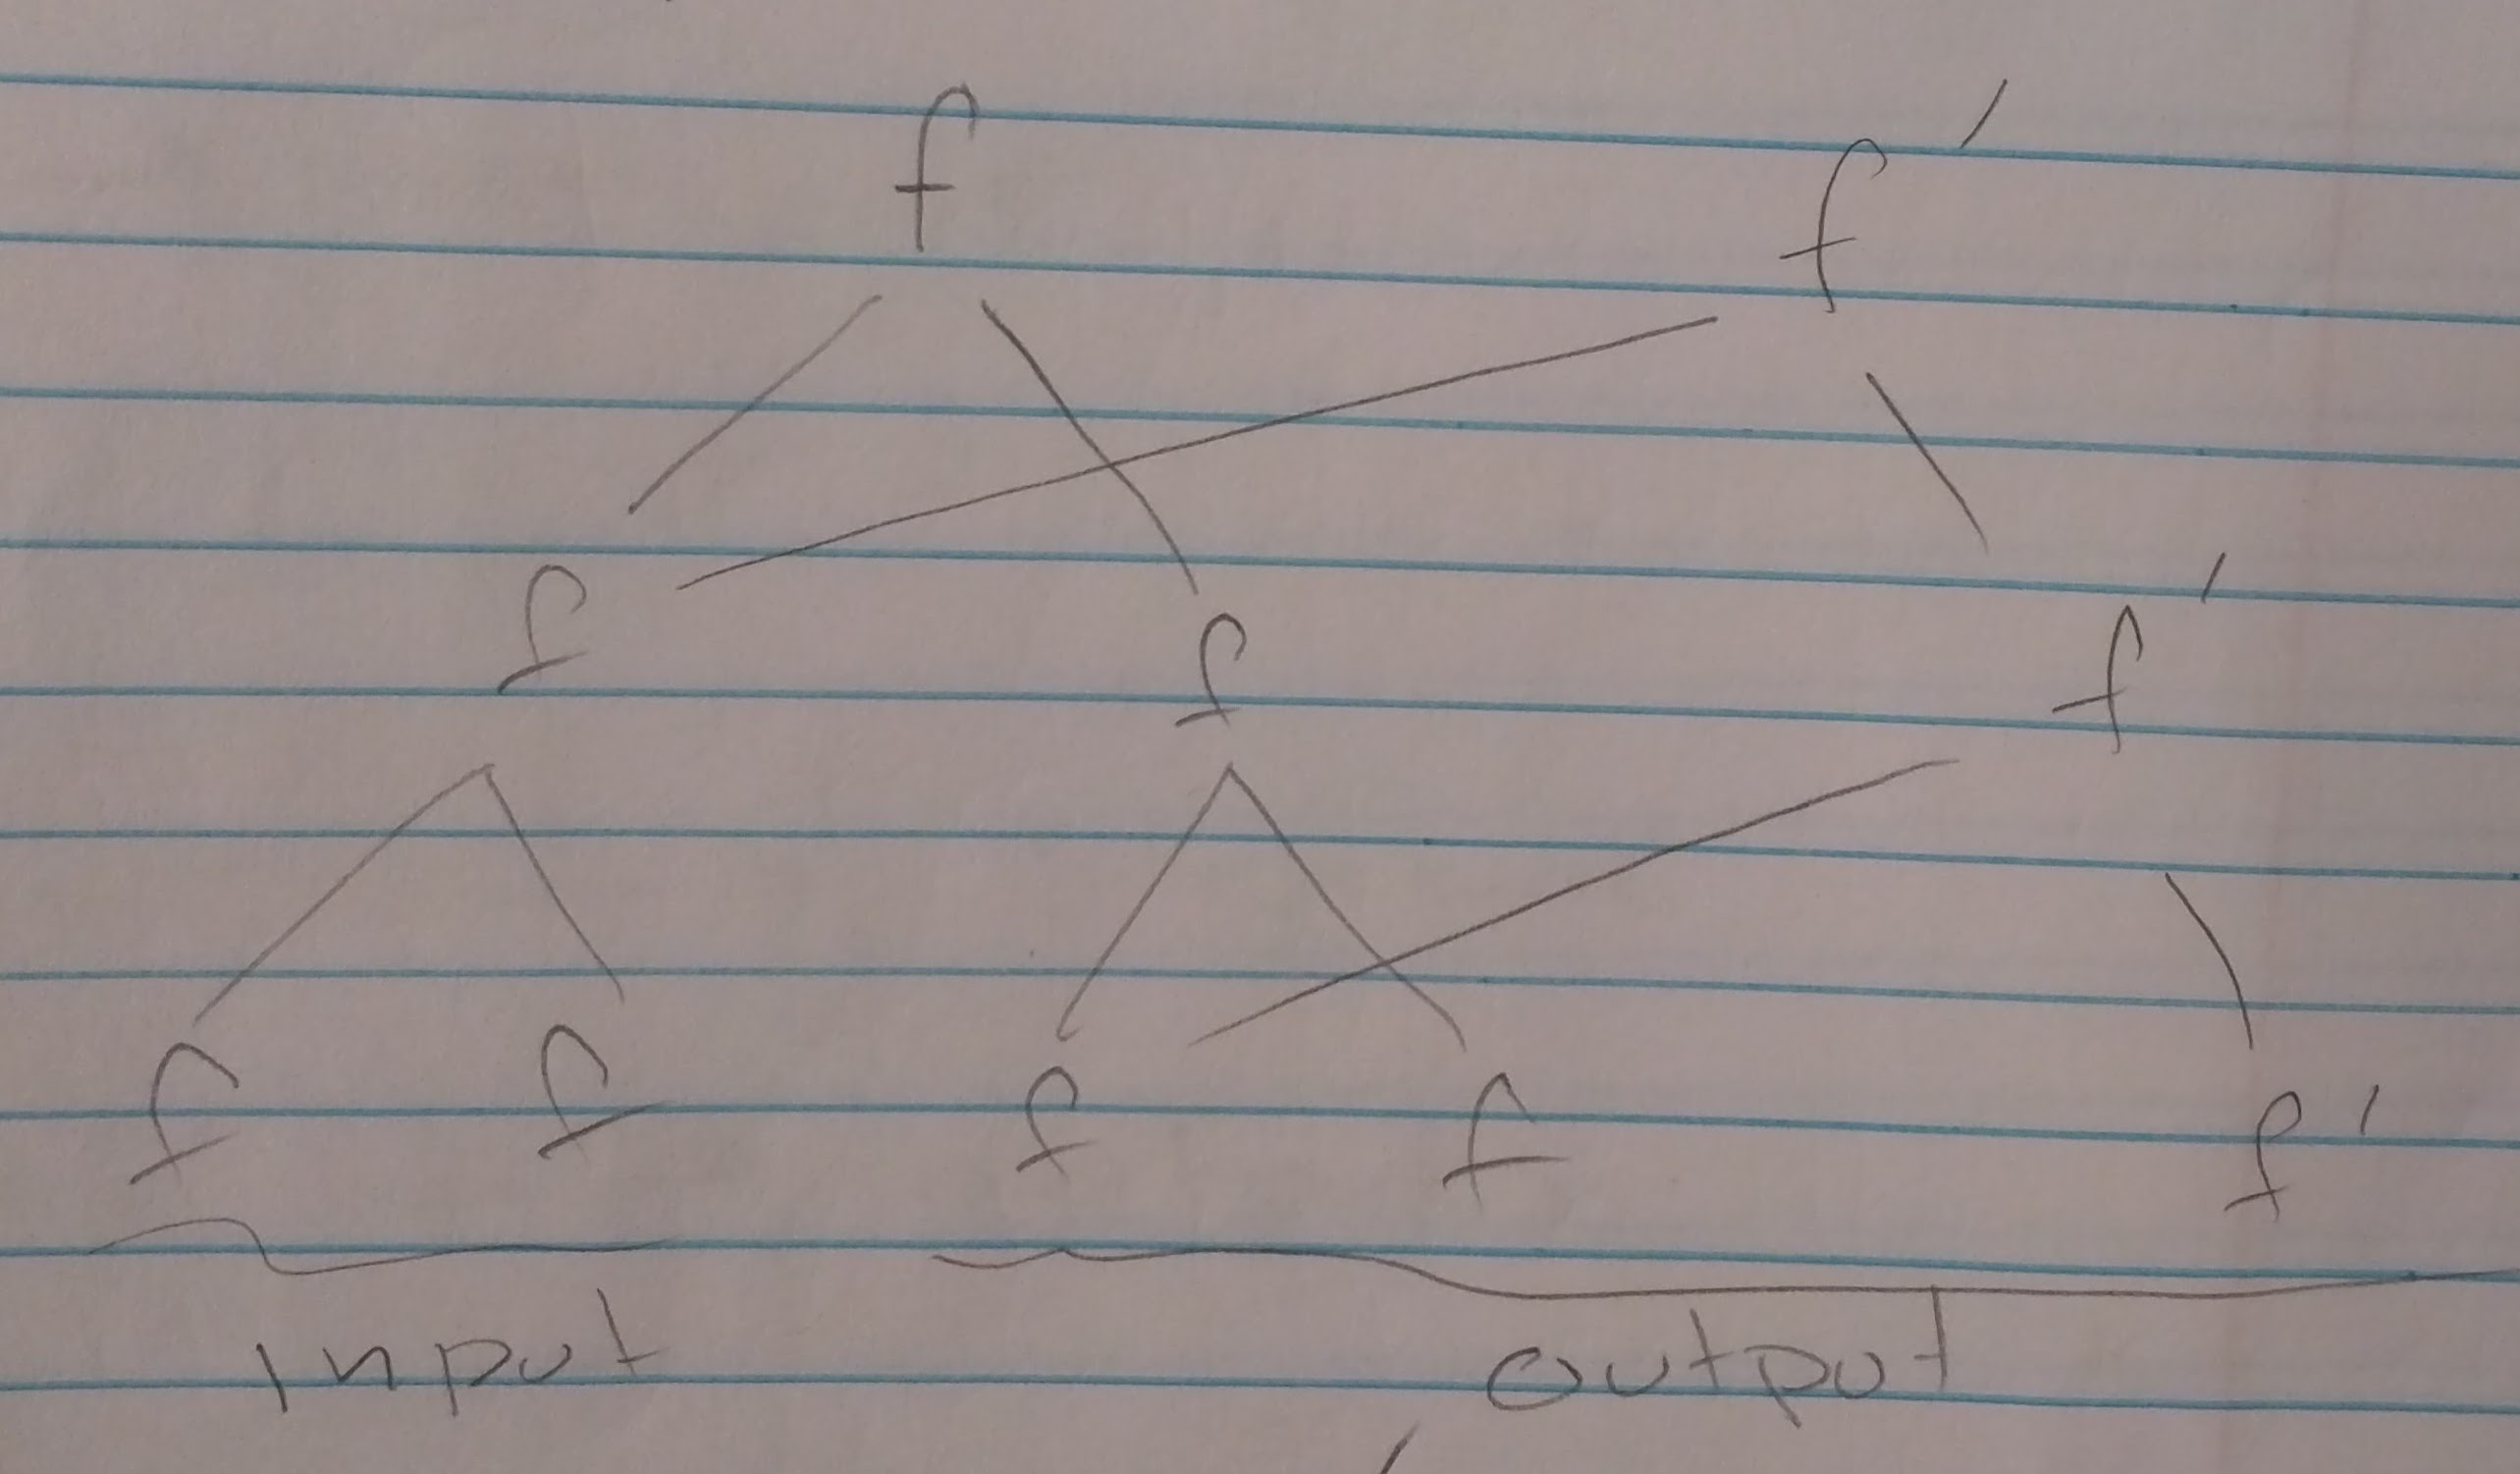 f f′
f f f′
f f f f f′
input output